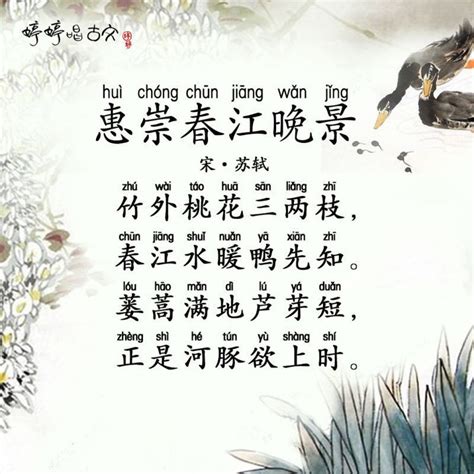 婷婷唱古文
huì chóng chūn jiāng wǎn jǐng
惠崇春江晚景
宋·苏轼
zhú wài táo huā sān liǎng zhī
竹外桃花三两枝，
chūn jiāng shuǐ nuǎn yā xiān zhī
春江水暖鸭先知。
lóu hāo mǎn dì lú yá duǎn
蒌蒿满地芦芽短，
zhèng shì hé tún yù shàng shí
正是河豚欲上时。